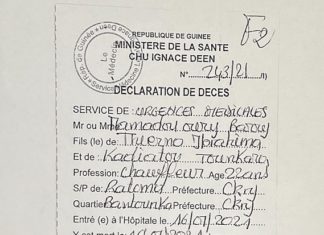 F2
REPUBLIQUE DE GUINEE
MINISTERE DE LA SANTE
CHU IGNACE DEEN
Le Médecin
N° 243/21 /1)
DECLARATION DE DECES
SERVICE DE: URGENCES MEDICALES
Mr ou Mme Mamadou oury Barry
Fils (le) de: Thierno Ibrahima
Et de: Kadiatou Tounkara
Profession: Chauffeur Age 22ans
S/P de Ratoma Préfecture: Ckry
Quartier Bantounka Préfecture Ckry
Entré (e) à l'Hôpitale le 16/07/2021
Y est mort